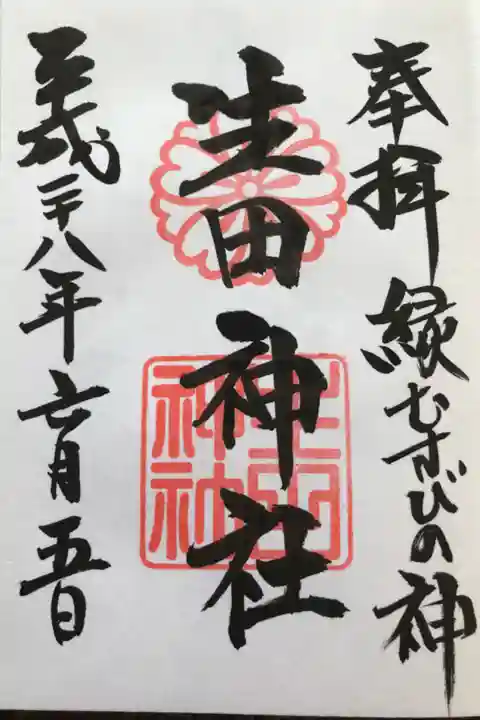 奉拝 縁むすびの神
生田神社
平成二十八年六月五日
生田神社